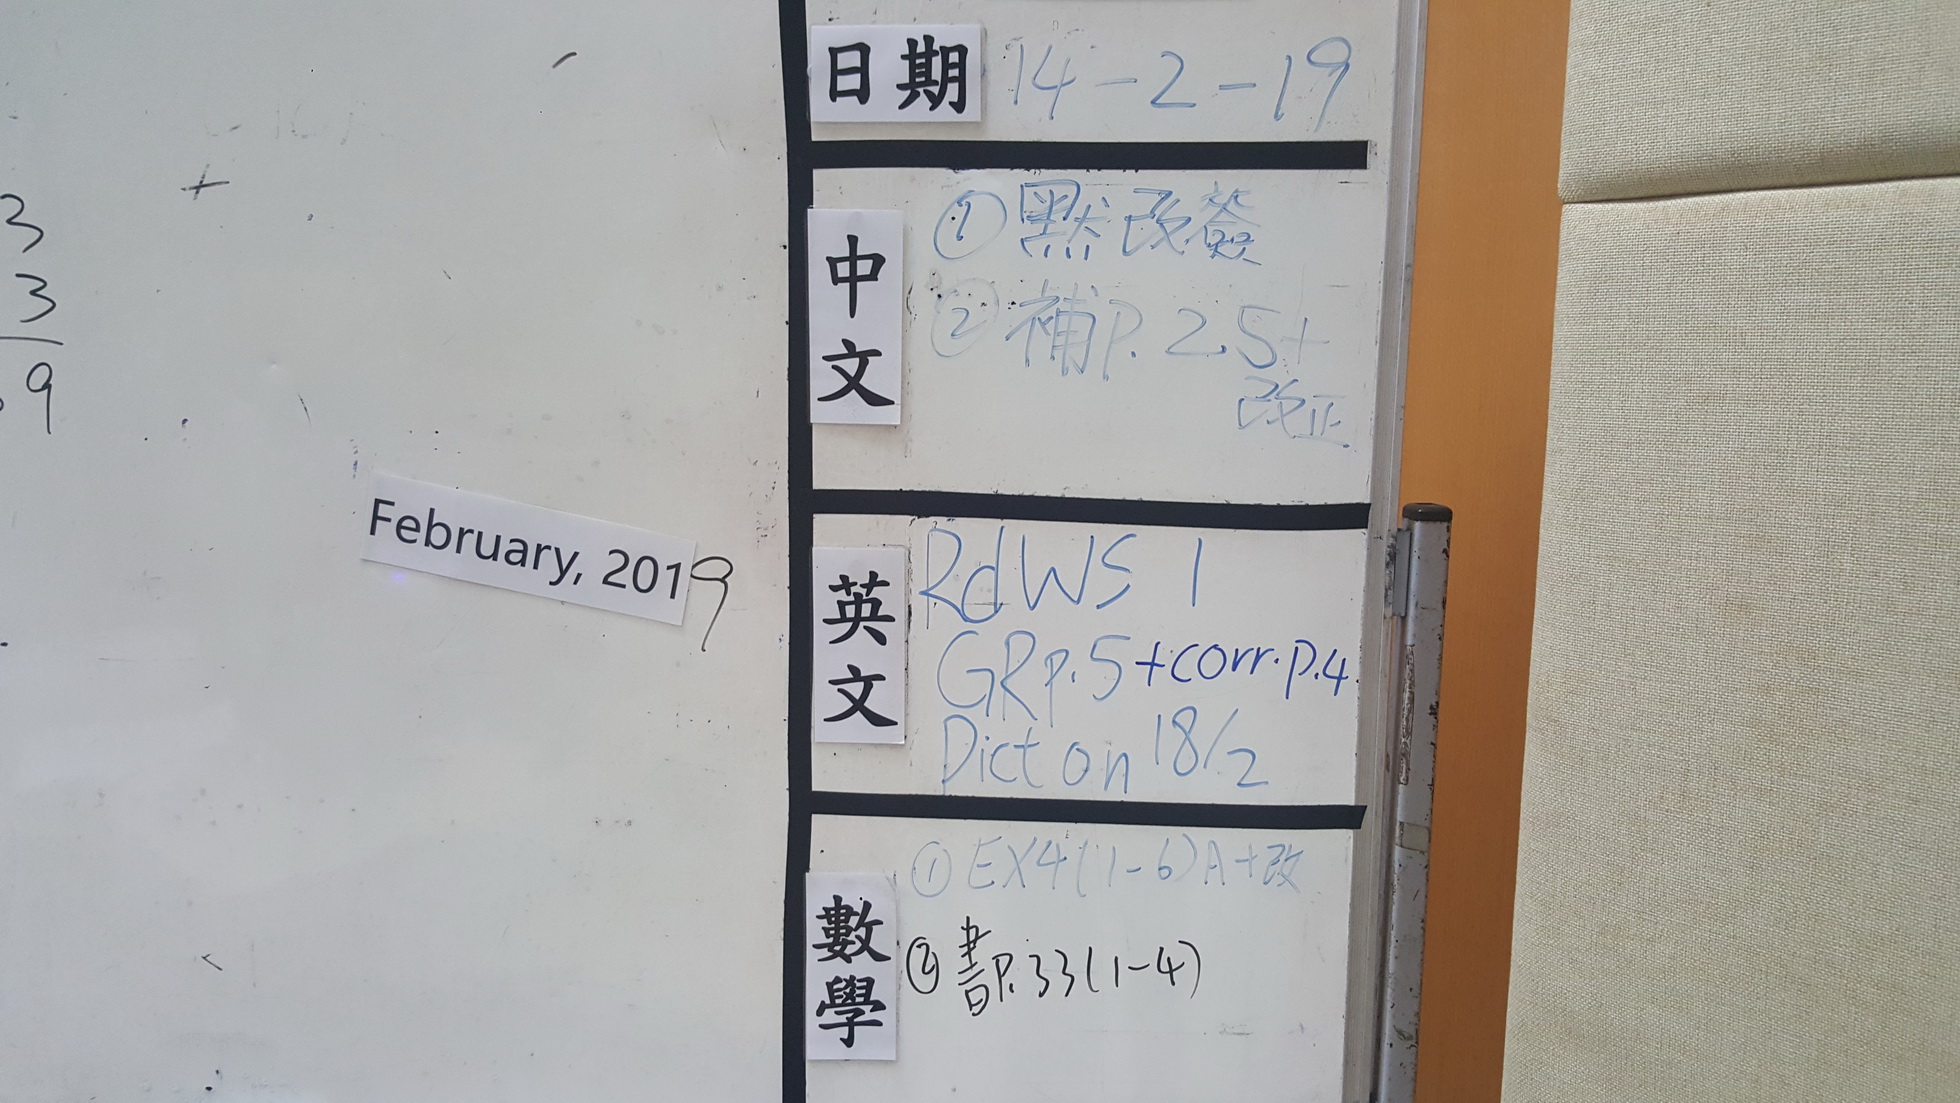 3
3
9
February, 2019
日期 14-2-19
中文
① 默改簽
② 補P.25+
改正
英文
Rd WS 1
GR p.5 + corr. p.4
Dict on 18/2
數學
① EX4(1-6)A+改
② 書P.33(1-4)